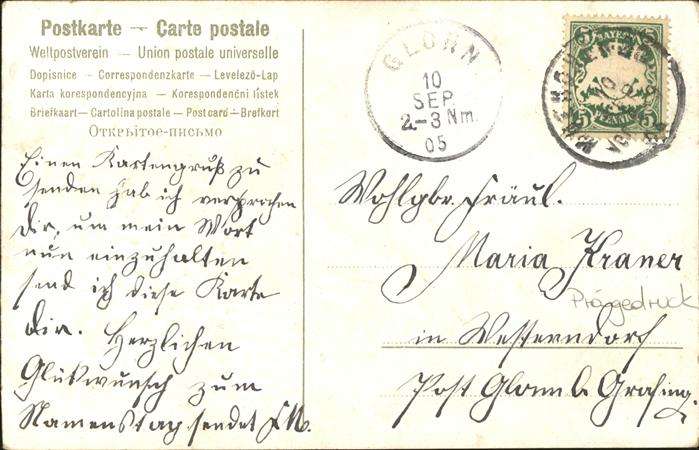 Postkarte — Carte postale
Weltpostverein — Union postale universelle
Dopisnice — Correspondenzkarte — Levelező-Lap
Karta korespondencyjna — Korespondenční lístek
Briefkaart — Cartolina postale — Postcard — Brefkort
Открытое-письмо
Einen Kartengruß zu
senden hab ich versprochen
Dir, um mein Wort
nun einzuhalten
send ich diese Karte
dir. Herzlichen
Glükwunsch zum
Namenstag sendet
GLONN
10
SEP
2-3 Nm.
05
5 BAYERN 5
5 PFENNIG 5
MÜNCHEN
Wohlgbr. Fräul.
Maria Kraner
Prägedruck
in Westerndorf
Post Glonn b. Grafing.